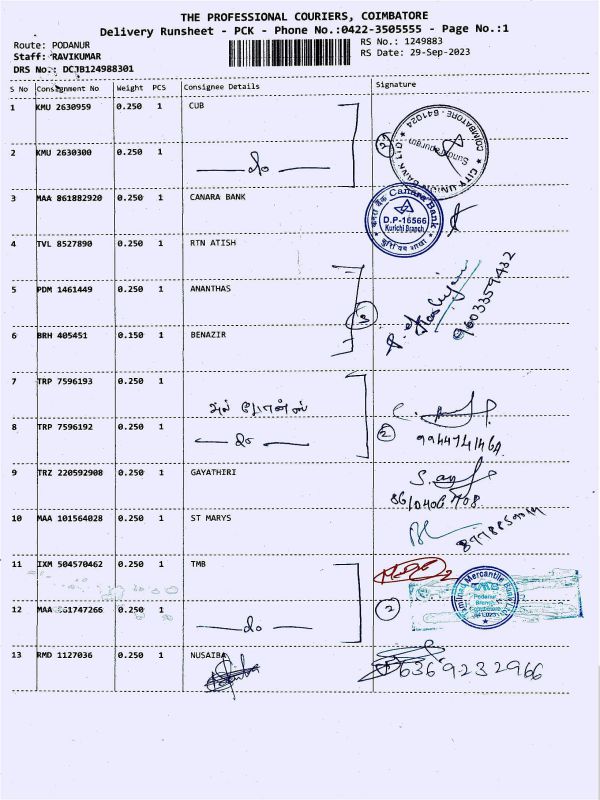 THE PROFESSIONAL COURIERS, COIMBATORE
Delivery Runsheet - PCK - Phone No.:0422-3505555 - Page No.:1
Route: PODANUR
Staff: RAVIKUMAR
DRS No.: DCJB124988301
RS No.: 1249883
RS Date: 29-Sep-2023
S No Consignment No Weight PCS Consignee Details Signature
1 KMU 2630959 0.250 1 CUB
2 KMU 2630300 0.250 1 do
COIMBATORE - 641024
CITY UNION BANK LTD.
3 MAA 861882920 0.250 1 CANARA BANK
Canara Bank
D.P-16566
Kurichi Branch
4 TVL 8527890 0.250 1 RTN ATISH
5 PDM 1461449 0.250 1 ANANTHAS
3
9603359432
6 BRH 405451 0.150 1 BENAZIR
7 TRP 7596193 0.250 1
8 TRP 7596192 0.250 1 do
2
9 TRZ 220592908 0.250 1 GAYATHIRI
10 MAA 101564028 0.250 1 ST MARYS
11 IXM 504570462 0.250 1 TMB
12 MAA 861747266 0.250 1 do
2
Tamilnad Mercantile Bank Ltd.
Podanur
Branch
Coimbatore
13 RMD 1127036 0.250 1 NUSAIBA
6369232966